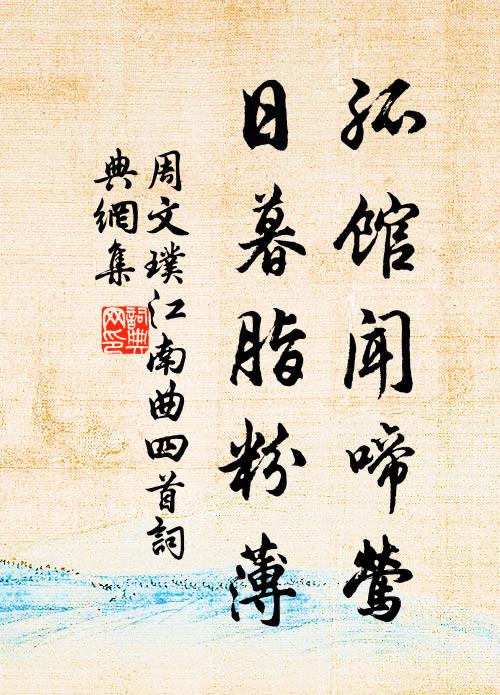 孤館闻啼莺
日暮脂粉薄
周文璞江南曲四首詞
典網集
詞典网印